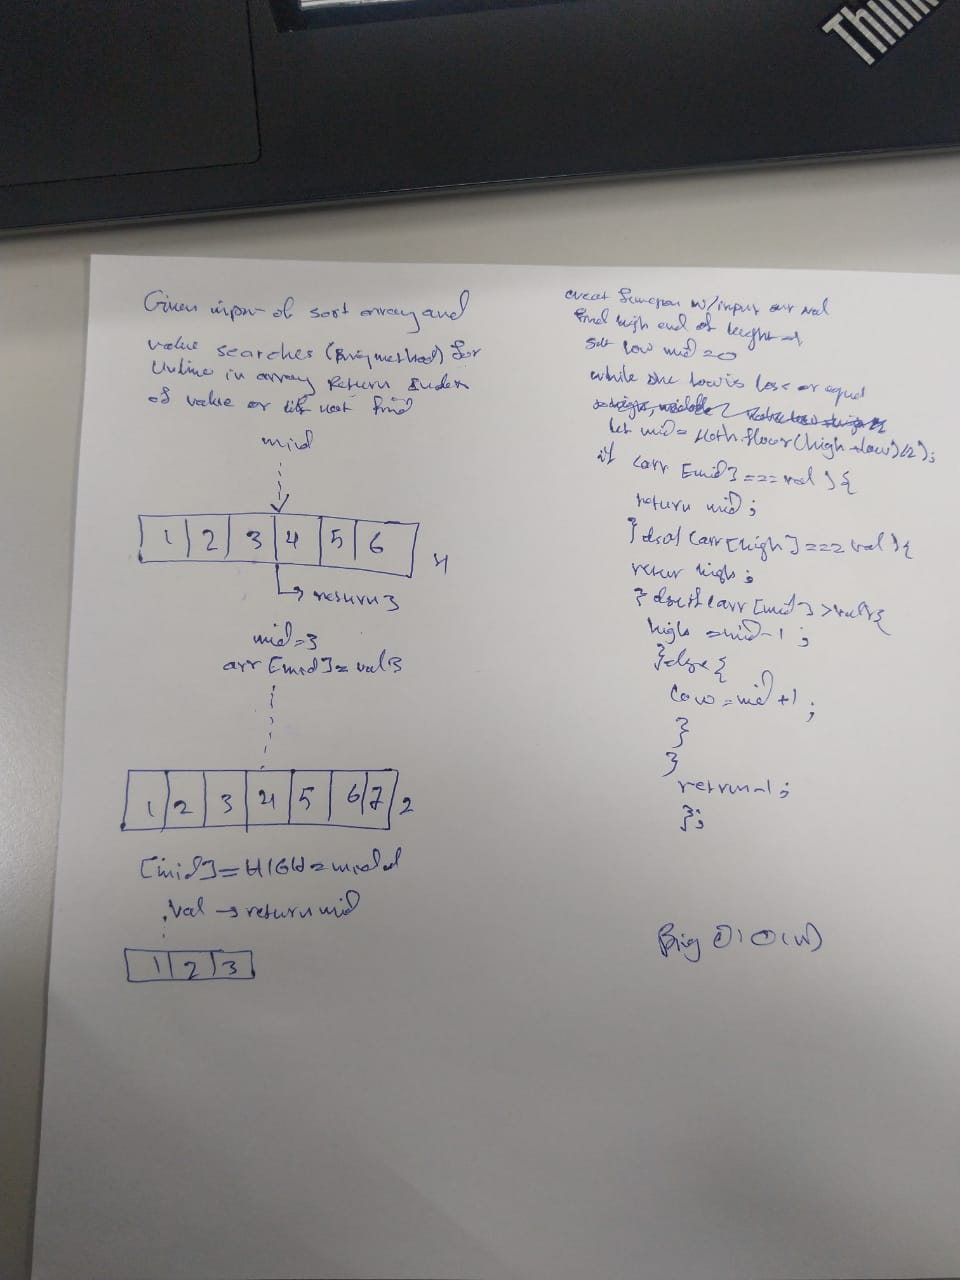 Think
Given input of sort array and
value searches (method) for
in array Return Index
of value or if not find
mid
1 2 3 4 5 6
4
return 3
mid=3
arr [mid] = val
1 2 3 4 5 6 7
2
[mid] = HIGH = mid
val → return mid
1 2 3
creat function w/input arr val
find high end of
set low mid = 0
while the low is less or equal
let mid = Math.floor(high + low)/2);
if (arr [mid] === val ) {
return mid ;
} (arr [high] === val ) {
return high ;
} else if (arr [mid] > val) {
high = mid - 1 ;
} else {
low = mid + 1 ;
}
}
return -1 ;
};
Big O: O(N)